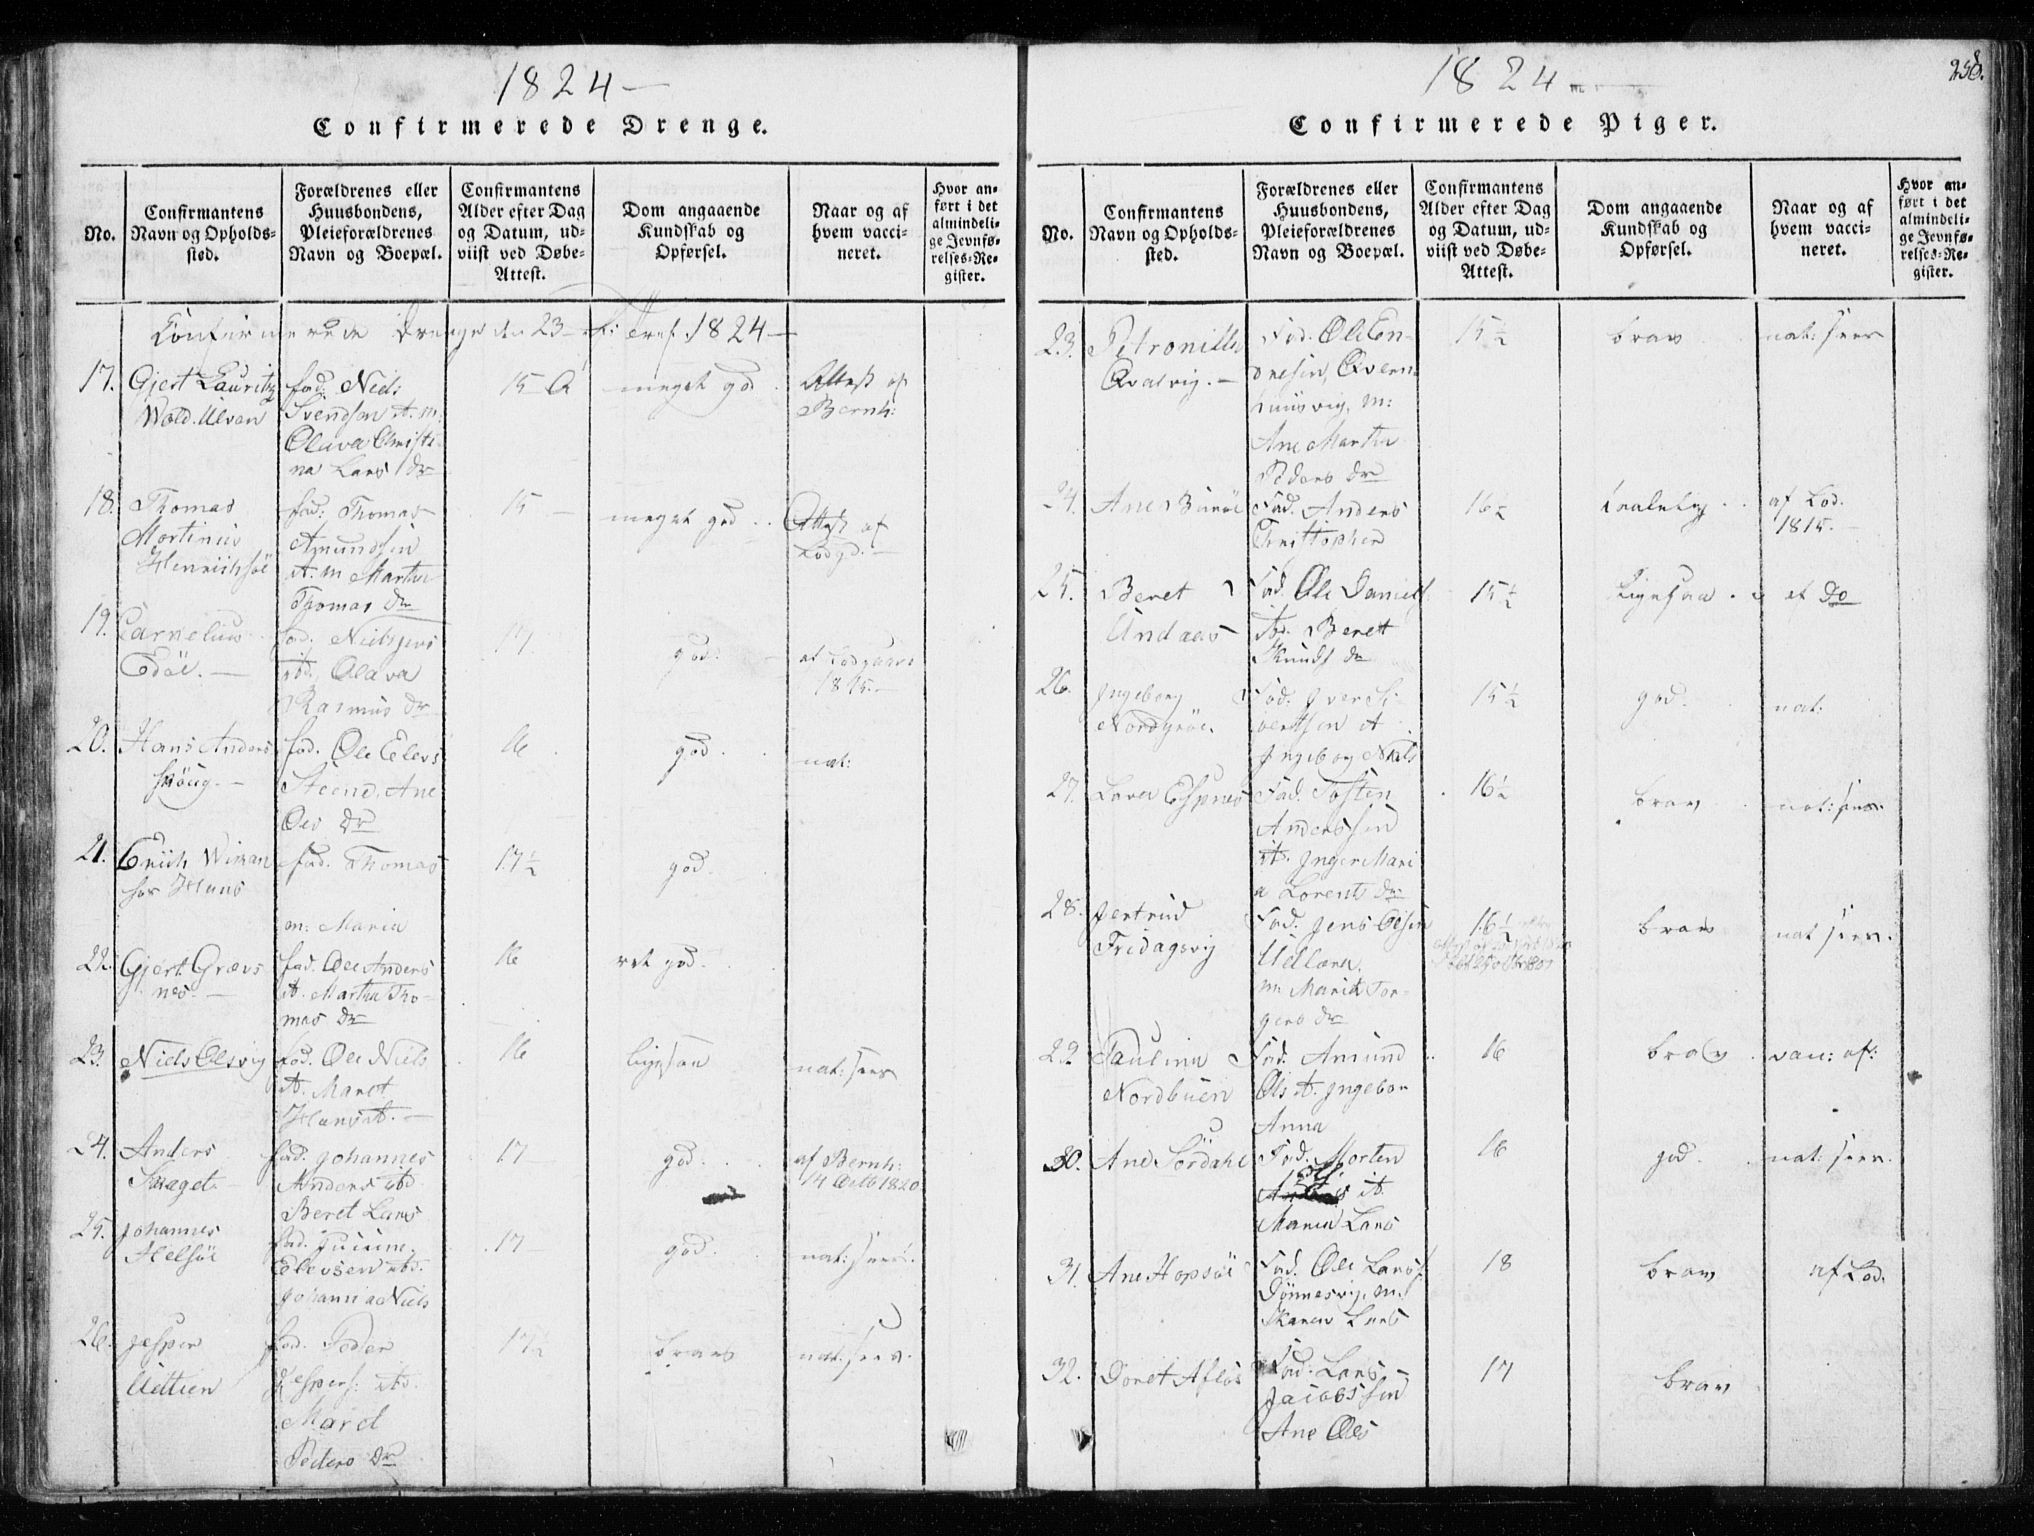 1824 —
Confirmerede Drenge.
No.
Confirmantens
Navn og Opholds-
sted.
Forældrenes eller
Huusbondens,
Pleieforældrenes
Navn og Boepæl.
Confirmantens
Alder efter Dag
og Datum, ud-
viist ved Døbe-
Attest.
Dom angaaende
Kundskab og
Opførsel.
Naar og af
hvem vacci-
neret.
Hvor an-
ført i det
almindeli-
ge Jevnfø-
relses-Re-
gister.
Confirmerede Drenge den 23 1824 —
17. Gjert Lauritz
Wold. Ulven
fad. Niels
Svendsen
Olava Christi
na Lars Dr
15
meget god
Attest af
Bernh:
18. Thomas
Martinus
Henrichsöe
fad: Thomas
Amundsen
m Martha
Thomas Dr
15 —
meget god
Attest af
Lodgd. —
19. Carnelius
Edöe. —
fad. Niels Jens
ibd. Olava
Rasmus Dr
17
god
af Lodgaard
1815. —
20. Hans Anders
Skoug. —
fad. Ole Elevs
Steend, Ane
Oles Dr
16
god
nat:
21. Erich Wikan
hos Hans
fad. Thomas
m: Maria
17 ½
god
22. Gjert Grævs
nes. —
fad. Ole Anders
it. Martha Tho-
mas Dr
16
ret god
23. Niels Olsvig
fad. Ole Niels
it. Maret
Hans it. —
16
ligesaa
nat: seer
24. Anders
Skaget. —
fad. Johannes
Anders ibd.
Beret Lars
17
god
af Bernh:
14 Octb 1820
25. Johannes
Helsöe
fad.
Elevsen ibd.
Johanna Niels
17
god
nat: seer.
26. Jesper
fad. Peder
Jespers: ibd.
Maret
Peders Dr
17 ½
brav
nat: seer.
1824
258.
Confirmerede Piger.
No.
Confirmantens
Navn og Opholds-
sted.
Forældrenes eller
Huusbondens,
Pleieforældrenes
Navn og Boepæl.
Confirmantens
Alder efter Dag
og Datum, ud-
viist ved Døbe-
Attest.
Dom angaaende
Kundskab og
Opførsel.
Naar og af
hvem vacci-
neret.
Hvor an-
ført i det
almindeli-
ge Jevnfø-
relses-Re-
gister.
23. Petronille
Qvalvig. —
Fad. Ole En-
dresen, Qvern-
huusvig, m:
Ane Martha
Peders Dr
15 ½
brav
nat: seer
24. Ane Buröe
Fad. Anders
Christopher
16 ½
taalelig
af Lod.
1815. —
25. Beret
Undaas
Fad. Ole Daniels
ibd. Beret
Knuds Dr
15 ½
Ligesaa
af Do
26. Ingeborg
Nordgröe.
Fad. Iver Si-
vertsen it
Ingeborg Niels
15 ½
god
nat:
27. Lava Espnes
Fad. Tosten
Anderssen
it. Inger Mari
a Lorents Dr
16 ½
brav
nat: seer.
28. Jertrud
Fridagsvig
Fad. Jens Olsen
m Marit Tor-
gers Dr
16 ½
brav
nat seer.
29. Paulina
Nordbuen
Fad. Amund
Ols it. Ingebor
Anna
16
brav
vac: af:
30. Ane Sördahl
Fad. Morten
it.
Maria Lars
16
god
nat: seer.
31. Ane Hopsöe
Fad. Ole Lars
Dönnesvig. m:
Karen Lars
18
brav
af Lod.
32. Doret Aflös
Fad. Lars
Jacobssen
Ane Oles
17
brav